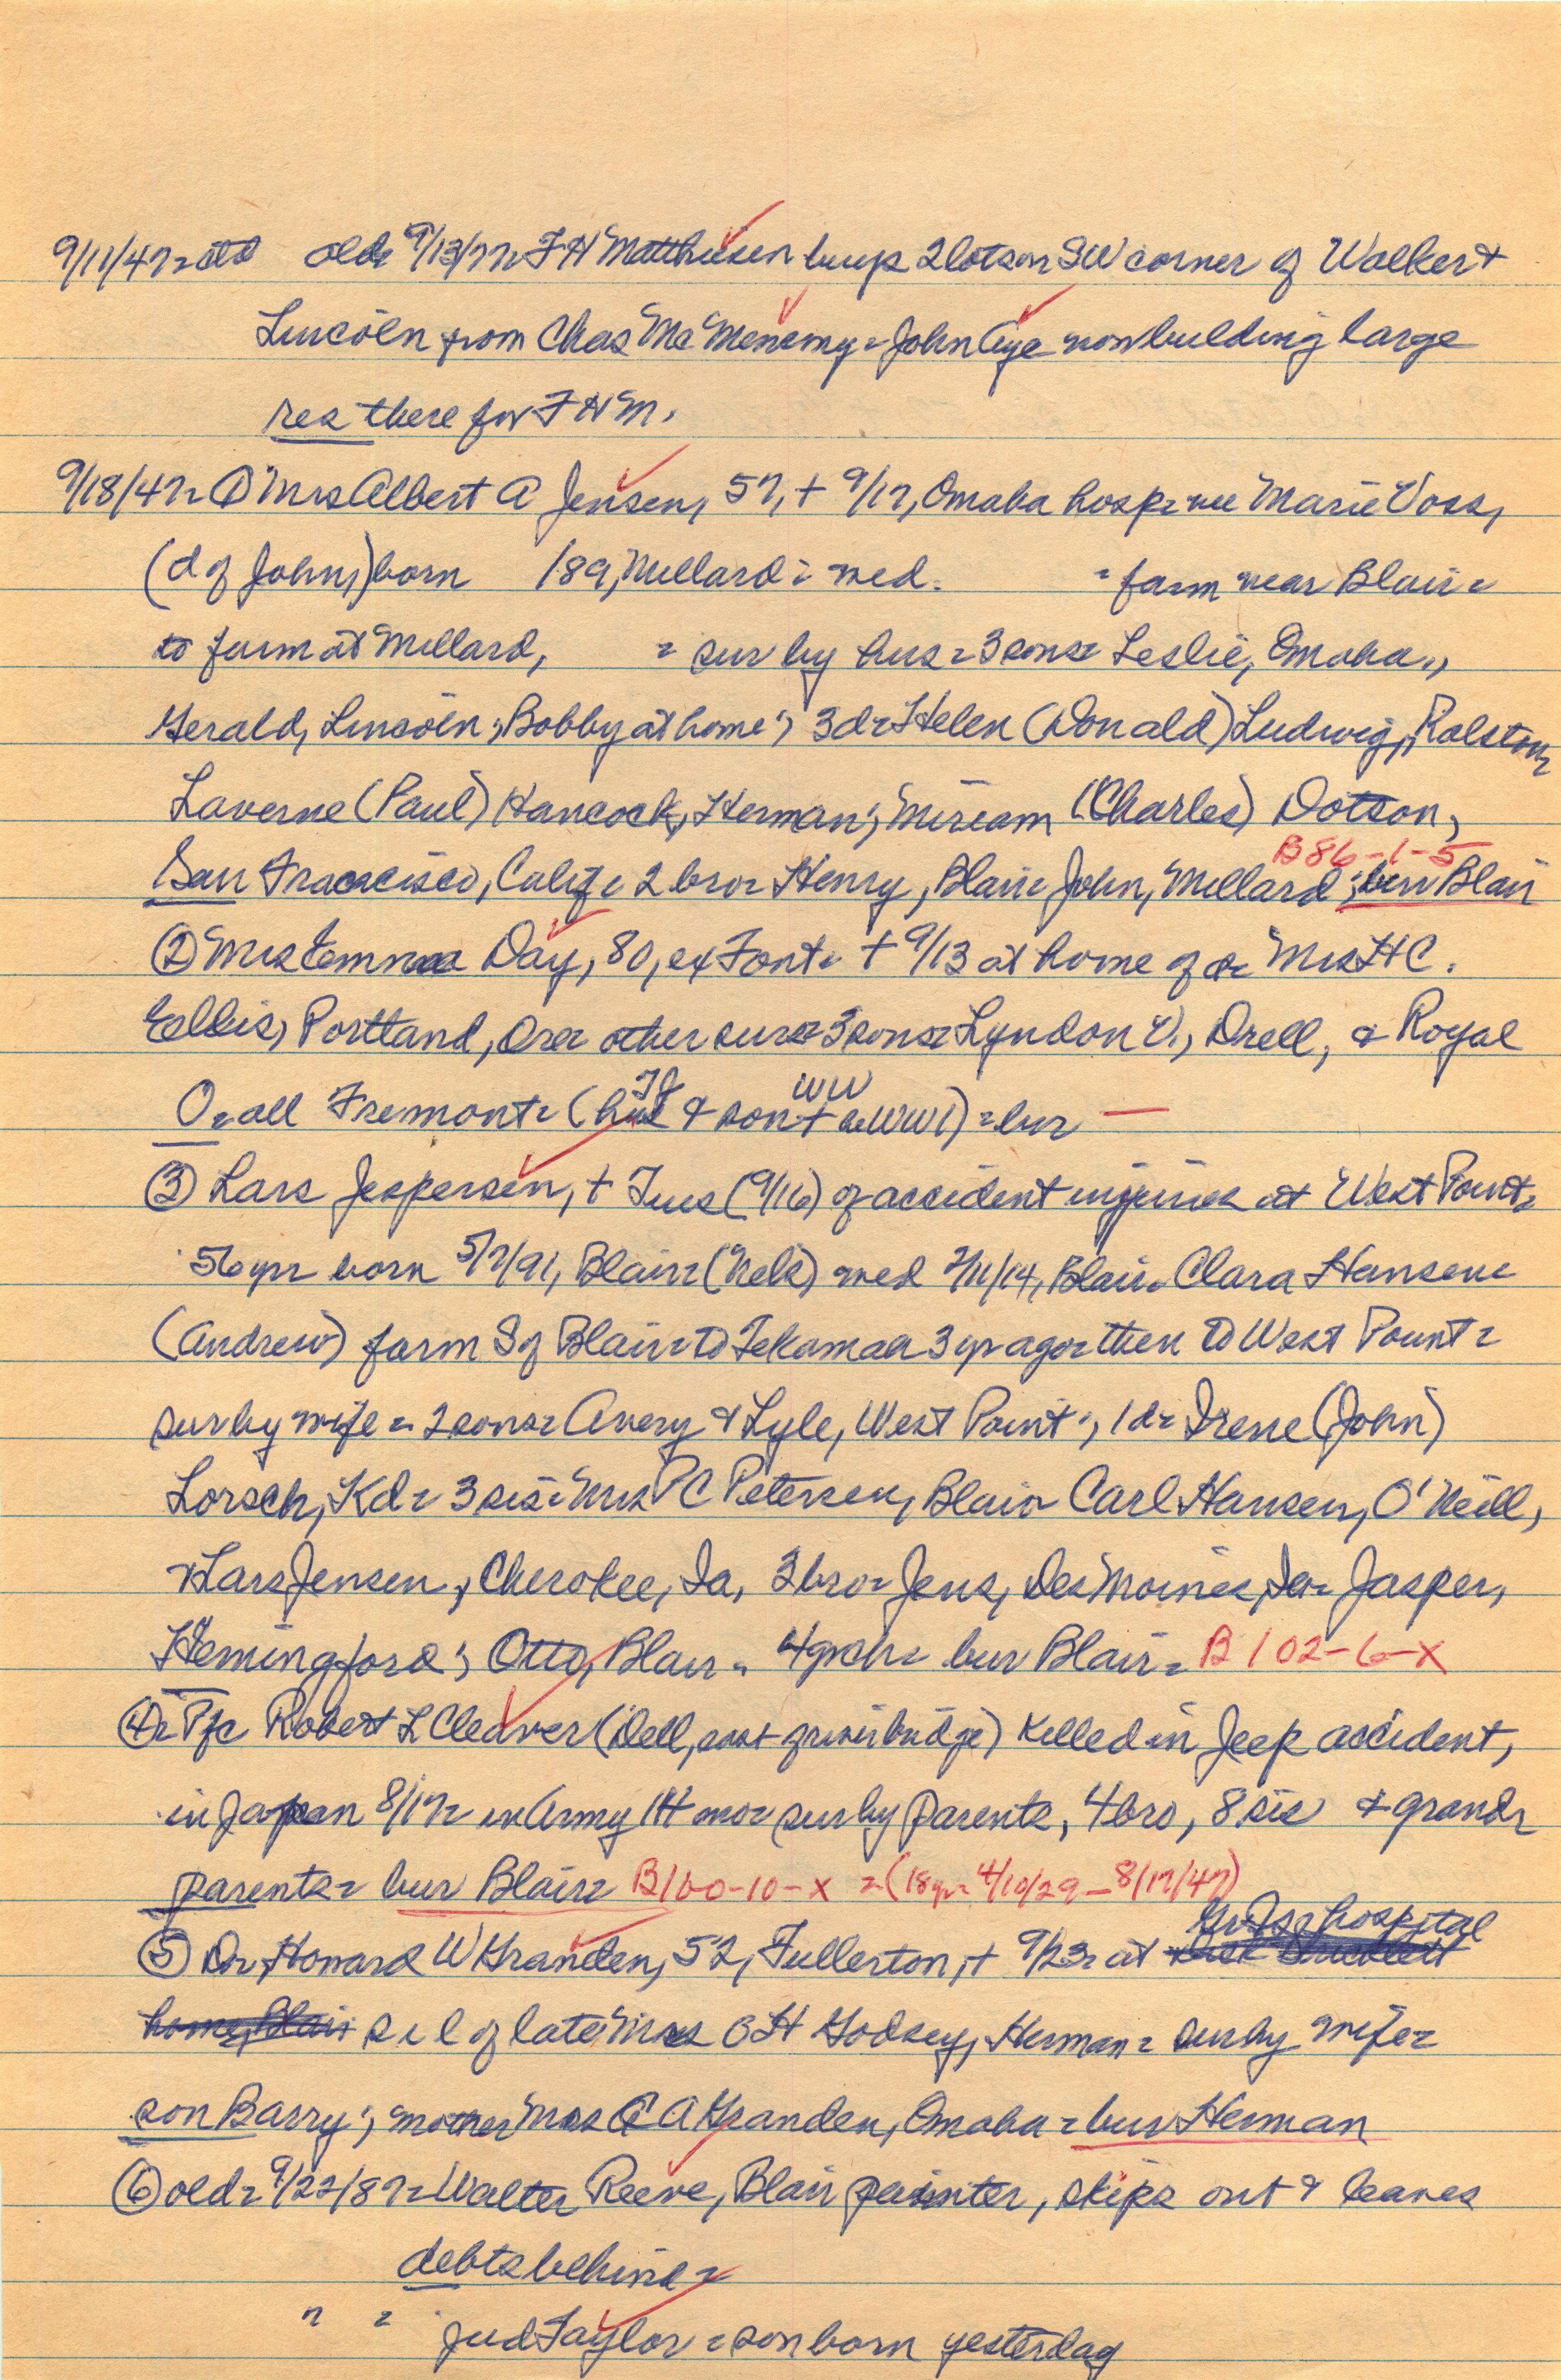 9/11/47= old old= 9/13/77= F H Matthiesen buys 2 lots on SW corner of Walker &
Lincoln from Chas McMenemy = John Aye now building large
res there for F H M.
9/18/47= ① Mrs Albert A Jensen, 57, + 9/17, Omaha hosp= nee Marie Voss,
(d of John,) born 189, Millard = med. = farm near Blair =
to farm at Millard, = sur by hus = 3 sons= Leslie, Omaha.,
Gerald, Lincoln; Bobby at home; 3 d= Helen (Donald) Ludwig, Ralston,
Laverne (Paul) Hancock, Herman; Miriam (Charles) Dotson,
San Francisco, Calif = 2 bro= Henry, Blair= John, Millard; bur Blair
B 86-1-5
② Mrs Emma Day, 80, ex Font= + 9/13 at home of d= Mrs H C.
Ellis, Portland, Ore= other sur= 3 sons= Lyndon V., Orell, & Royal
O= all Fremont= (hus & son + WW1) = bur —
③ Lars Jespersen, + Tues (9/16) of accident injuries at West Point=
56 yr= born 5/7/91, Blair= (Nels) med 2/11/14, Blair= Clara Hansen=
(Andrew) farm S of Blair= to Tekamah 3 yr ago= then to West Point=
sur by wife = 2 sons= Avery & Lyle, West Point; 1 d= Irene (John)
Lorsch, Kd= 3 sis= Mrs P C Petersen, Blair= Carl Hansen, O'Neill,
& Lars Jensen, Cherokee, Ia, 3 bro= Jens, Des Moines, Ia= Jasper,
Hemingford; Otto, Blair= 4 grch= bur Blair= B 102-6-X
④= Pfc Robert L Cleaver (Dell, east of river bridge) killed in Jeep accident,
in Japan 8/17= in Army 14 mo= sur by parents, 4 bro, 8 sis & grand=
parents= bur Blair= B100-10-X = (18 yr= 4/10/29 - 8/17/47)
⑤ Dr Howard W Granden, 52, Fullerton, + 9/23= at hospital
home, Blair s i l of late Mrs O H Godsey, Herman = sur by wife=
son Barry; mother Mrs C A Granden, Omaha = bur Herman
⑥ old= 9/22/87= Walter Reeve, Blair painter, skips out & leaves
debts behind =
" = Jud Taylor = son born yesterday